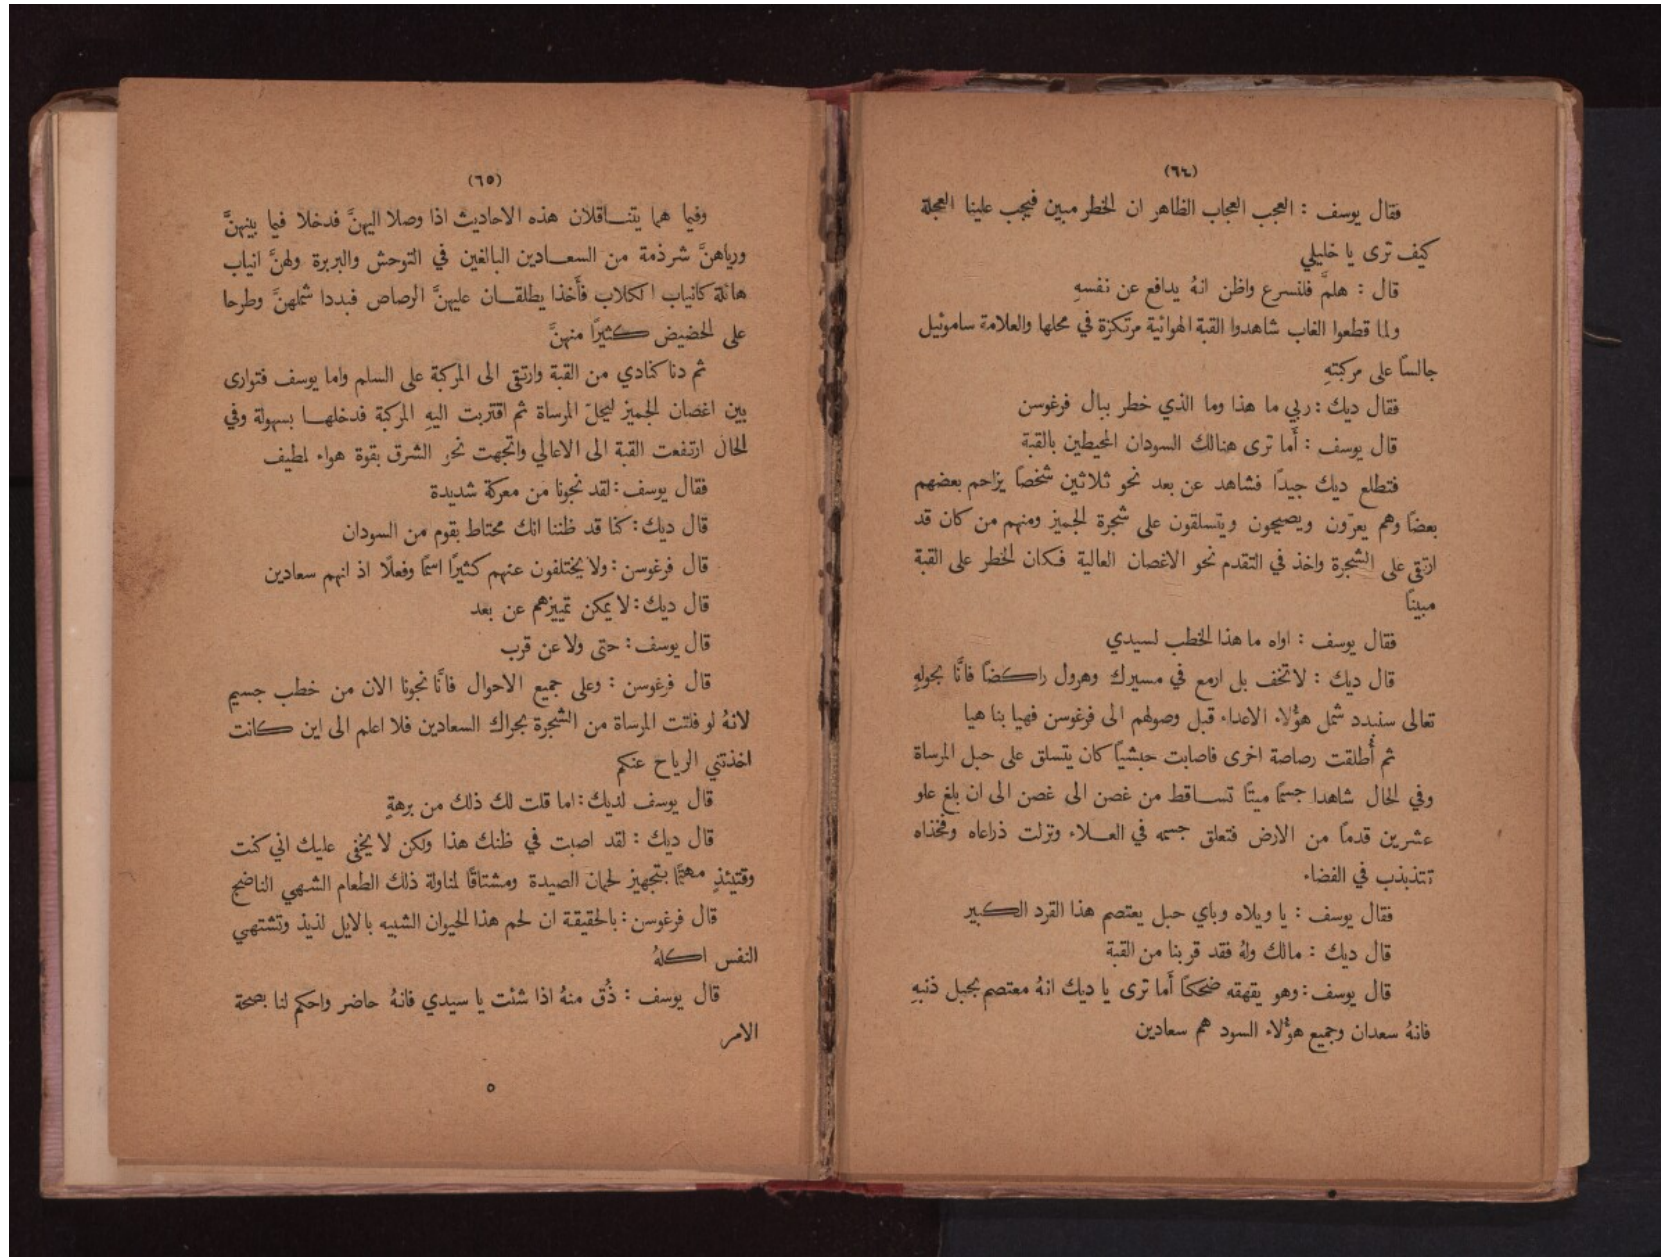 (٦٤)
فقال يوسف : العجب العجاب الظاهر ان الخطر مبين فيجب علينا العجلة
كيف ترى يا خليلي
قال : هلمَّ فلنسرع واظن انهُ يدافع عن نفسهِ
ولما قطعوا الغاب شاهدوا القبة الهوائية مرتكزة في محلها والعلامة ساموئيل
جالسًا على مركبتهِ
فقال ديك : ربي ما هذا وما الذي خطر ببال فرغوسن
قال يوسف : أَما ترى هنالك السودان المحيطين بالقبة
فتطلع ديك جيدًا فشاهد عن بعد نحو ثلاثين شخصًا يزاحم بعضهم
بعضًا وهم يعرّون ويصيحون ويتسلقون على شجرة الجميز ومنهم من كان قد
ارتقى على الشجرة واخذ في التقدم نحو الاغصان العالية فكان الخطر على القبة
مبينًا
فقال يوسف : اواه ما هذا الخطب لسيدي
قال ديك : لا تخف بل ارمع في مسيرك وهرول راكضًا فانَّا بحولهِ
تعالى سنبدد شمل هؤلاء الاعداء قبل وصولهم الى فرغوسن فهيا بنا هيا
ثم أُطلقت رصاصة اخرى فاصابت حبشيًا كان يتسلق على حبل المرساة
وفي الحال شاهدا جسمًا ميتًا تساقط من غصن الى غصن الى ان بلغ علو
عشرين قدمًا من الارض فتعلق جسمه في العلاء ونزلت ذراعاه وفخذاه
تتذبذب في الفضاء
فقال يوسف : يا ويلاه وباي حبل يعتصم هذا القرد الكبير
قال ديك : مالك ولهُ فقد قربنا من القبة
قال يوسف : وهو يقهقه ضحكًا أَما ترى يا ديك انهُ معتصم بحبل ذنبهِ
فانهُ سعدان وجميع هؤلاء السود هم سعادين
(٦٥)
وفيما هما يتناقلان هذه الاحاديث اذا وصلا اليهنَّ فدخلا فيما بينهنَّ
ورياهنَّ شرذمة من السعادين البالغين في التوحش والبربرة ولهنَّ انياب
هائلة كانياب الكلاب فأَخذا يطلقان عليهنَّ الرصاص فبددا شملهنَّ وطرحا
على الحضيض كثيرًا منهنَّ
ثم دنا كنادي من القبة وارتقى الى المركبة على السلم واما يوسف فتوارى
بين اغصان الجميز ليحلّ المرساة ثم اقتربت اليهِ المركبة فدخلها بسهولة وفي
الحال ارتفعت القبة الى الاعالي واتجهت نحو الشرق بقوة هواء لطيف
فقال يوسف : لقد نجونا من معركة شديدة
قال ديك : كنا قد ظننا انك محتاط بقوم من السودان
قال فرغوسن : ولا يختلفون عنهم كثيرًا اسمًا وفعلًا اذ انهم سعادين
قال ديك : لا يمكن تمييزهم عن بعد
قال يوسف : حتى ولا عن قرب
قال فرغوسن : وعلى جميع الاحوال فانَّا نجونا الان من خطب جسيم
لانهُ لو فلتت المرساة من الشجرة بحراك السعادين فلا اعلم الى اين كانت
اخذتني الرياح عنكم
قال يوسف لديك : اما قلت لك ذلك من برهةٍ
قال ديك : لقد اصبت في ظنك هذا ولكن لا يخفى عليك اني كنت
وقتيئذٍ مهتمًا بتجهيز لحمان الصيدة ومشتاقًا لمناولة ذلك الطعام الشهي الناضج
قال فرغوسن : بالحقيقة ان لحم هذا الحيوان الشبيه بالايل لذيذ وتشتهي
النفس اكلهُ
قال يوسف : ذُق منهُ اذا شئت يا سيدي فانهُ حاضر واحكم لنا بصحة
الامر
٥